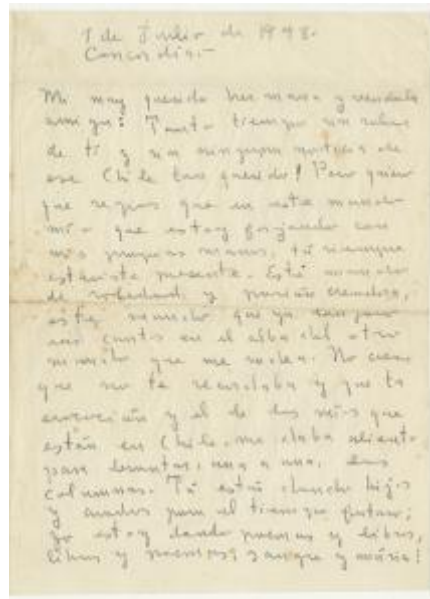 1 de Junio de 1948.
Concordia.-
Mi muy querido hermano y
amigo: Tanto tiempo sin saber
de ti y sin ninguna noticia de
ese Chile tan querido! Pero quiero
que sepas que en este mundo
mío que estoy forjando con
mis propias manos, tú siempre
estuviste presente. Este mundo
de soledad y creadora,
este mundo que ya
un canto en el alba del otro
mundo que me rodea. No creas
que no te recordaba y que tu
evocación y el de los míos que
están en Chile me daba aliento
para levantar, una a una, sus
columnas. Tú estás dando hijos
y para el tiempo futuro;
yo estoy dando poemas y libros,
libros y poemas, sangre y música!